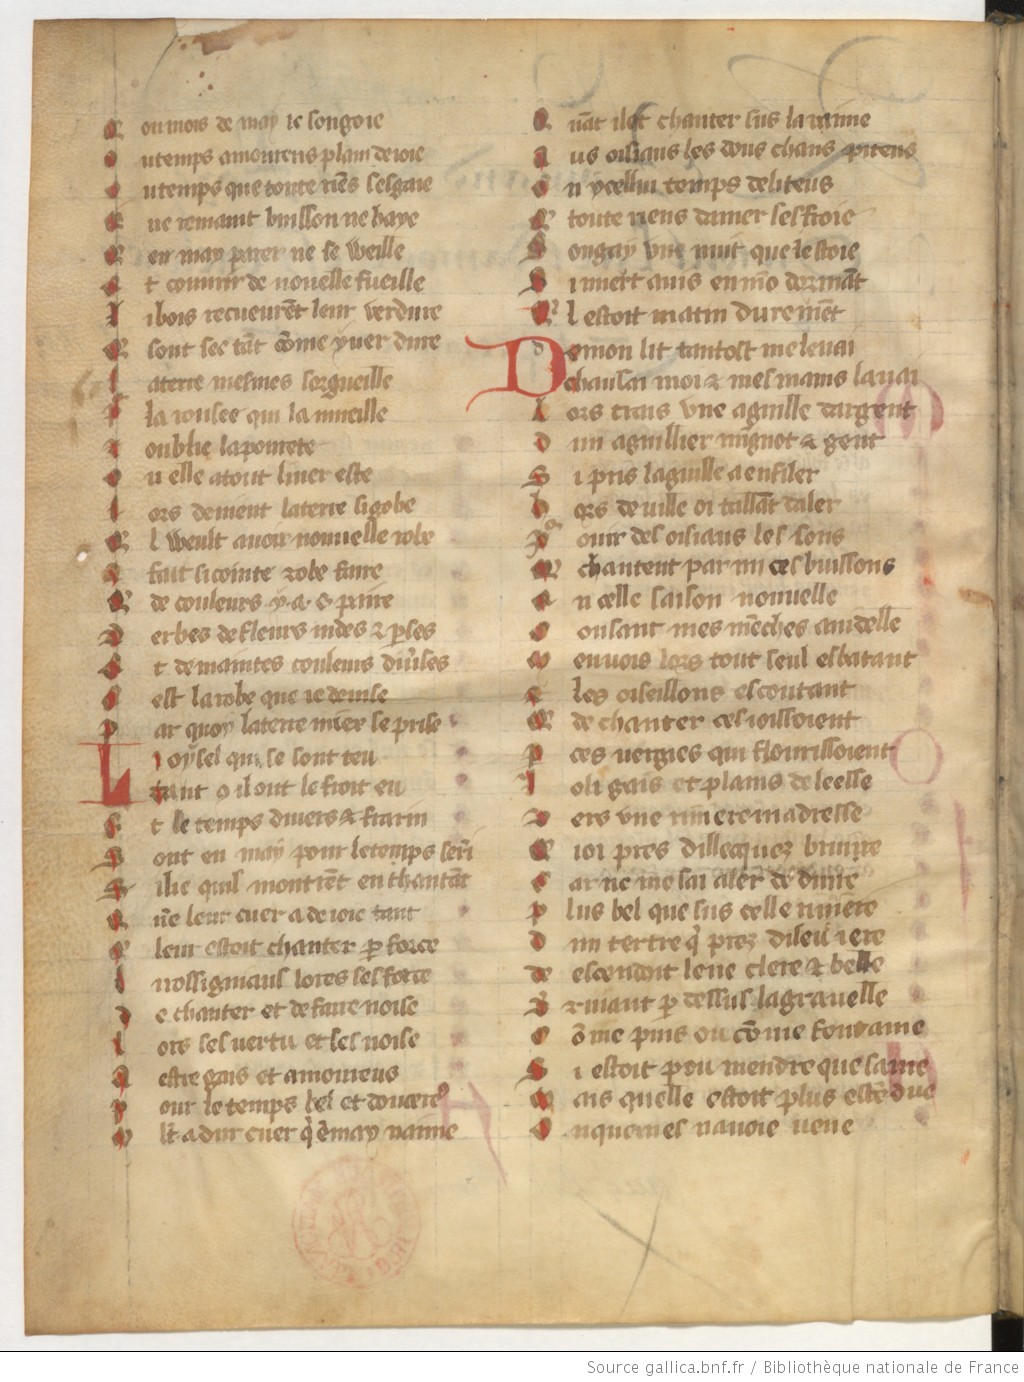 E ou mois de may ie songoie
O u temps amoureus plain de ioie
O u temps que toute riẽs sesgaie
Q ue remaint buisson ne haye
Q en may parer ne se weille
E t couurir de nouelle fueille
L i bois recueurẽt leur verdure
Q sont sec tãt cõme yuer dure
L a terre mesmes sorgueille
P la rousee qui la mueille
oublie la pourete
O u elle a tout liuer este
L ors deuient la terre si gobe
Q l weult auoir nouuelle robe
S fait si cointe robe faire
Q de couleurs y a . c . paire
D erbes de fleurs indes & pses
E t de maintes couleurs diuses
C est la robe que ie deuise
P ar quoy la terre mier se prise
L i oysel qui se sont teu
tant o il ont le froit eu
E t le temps diuers & frarin
S ont en may pour le temps seri
S i lie quil monstrẽt en chantãt
Q ũe leur cuer a de ioie tant
Q leur estoit chanter p force
L i rossignaul lores sesforce
D e chanter et de faire noise
L ors sesuertu et les noise
A estre gais et amoureus
P our le temps bel et doucereꝰ
M lt a dur cuer q̃ ẽ may naime
Q uãt il ot chanter sus la raime
A us oisiaus les dous chans piteus
O n ycellui temps deliteus
Q toute riens damer sesfroie
S ongay vne nuit que iestoie
S i miert auis en mõ dormãt
Q l estoit matin duremẽt
D e mon lit tantost me leuai
chausai moi & mes mains lauai
L ors trais vne aguille dargent
D un aguillier mignot & gent
S i pris laguille a enfiler
H ors de ville oi tallãt daler
P our ouir des oisiaus les sons
Q chantent par mi ces buissons
E n celle saison nouuelle
C ousant mes mẽches a uidelle
M en vois lors tout seul esbatant
E les oiseillons escoutant
Q de chanter ces ioissoient
P ces vergies qui flourissoient
I oli gais et plains de leesse
V ers vne riuiere madresse
Q ioi pres dillecquez bruire
C ar ne me sai aler deduire
P lus bel que sus celle riuiere
D un tertre q̃ prez dileu iere
descendoit leue clere & belle
B ruiant p dessus la grauelle
C õme puis ou cõme fontaine
S i estoit peu mendre que saine
M ais quelle estoit plus estẽdue
O nquemes nauoie veue